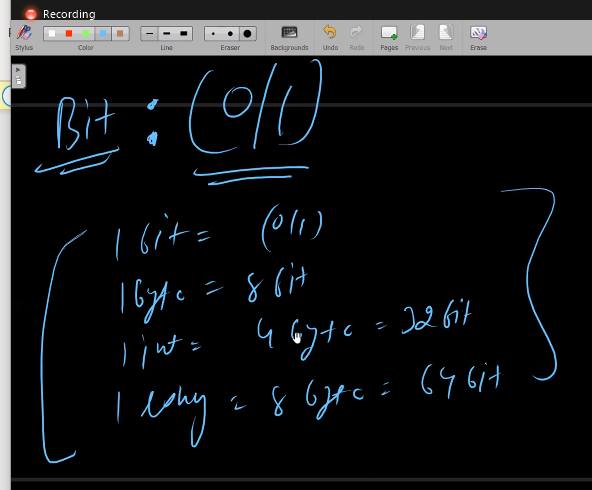 Recording
Stylus Color Line Eraser Backgrounds Undo Redo Pages Previous Next Erase
Bit : (0/1)
1 bit = (0/1)
1 byte = 8 bit
1 int = 4 byte = 32 bit
1 long = 8 byte = 64 bit